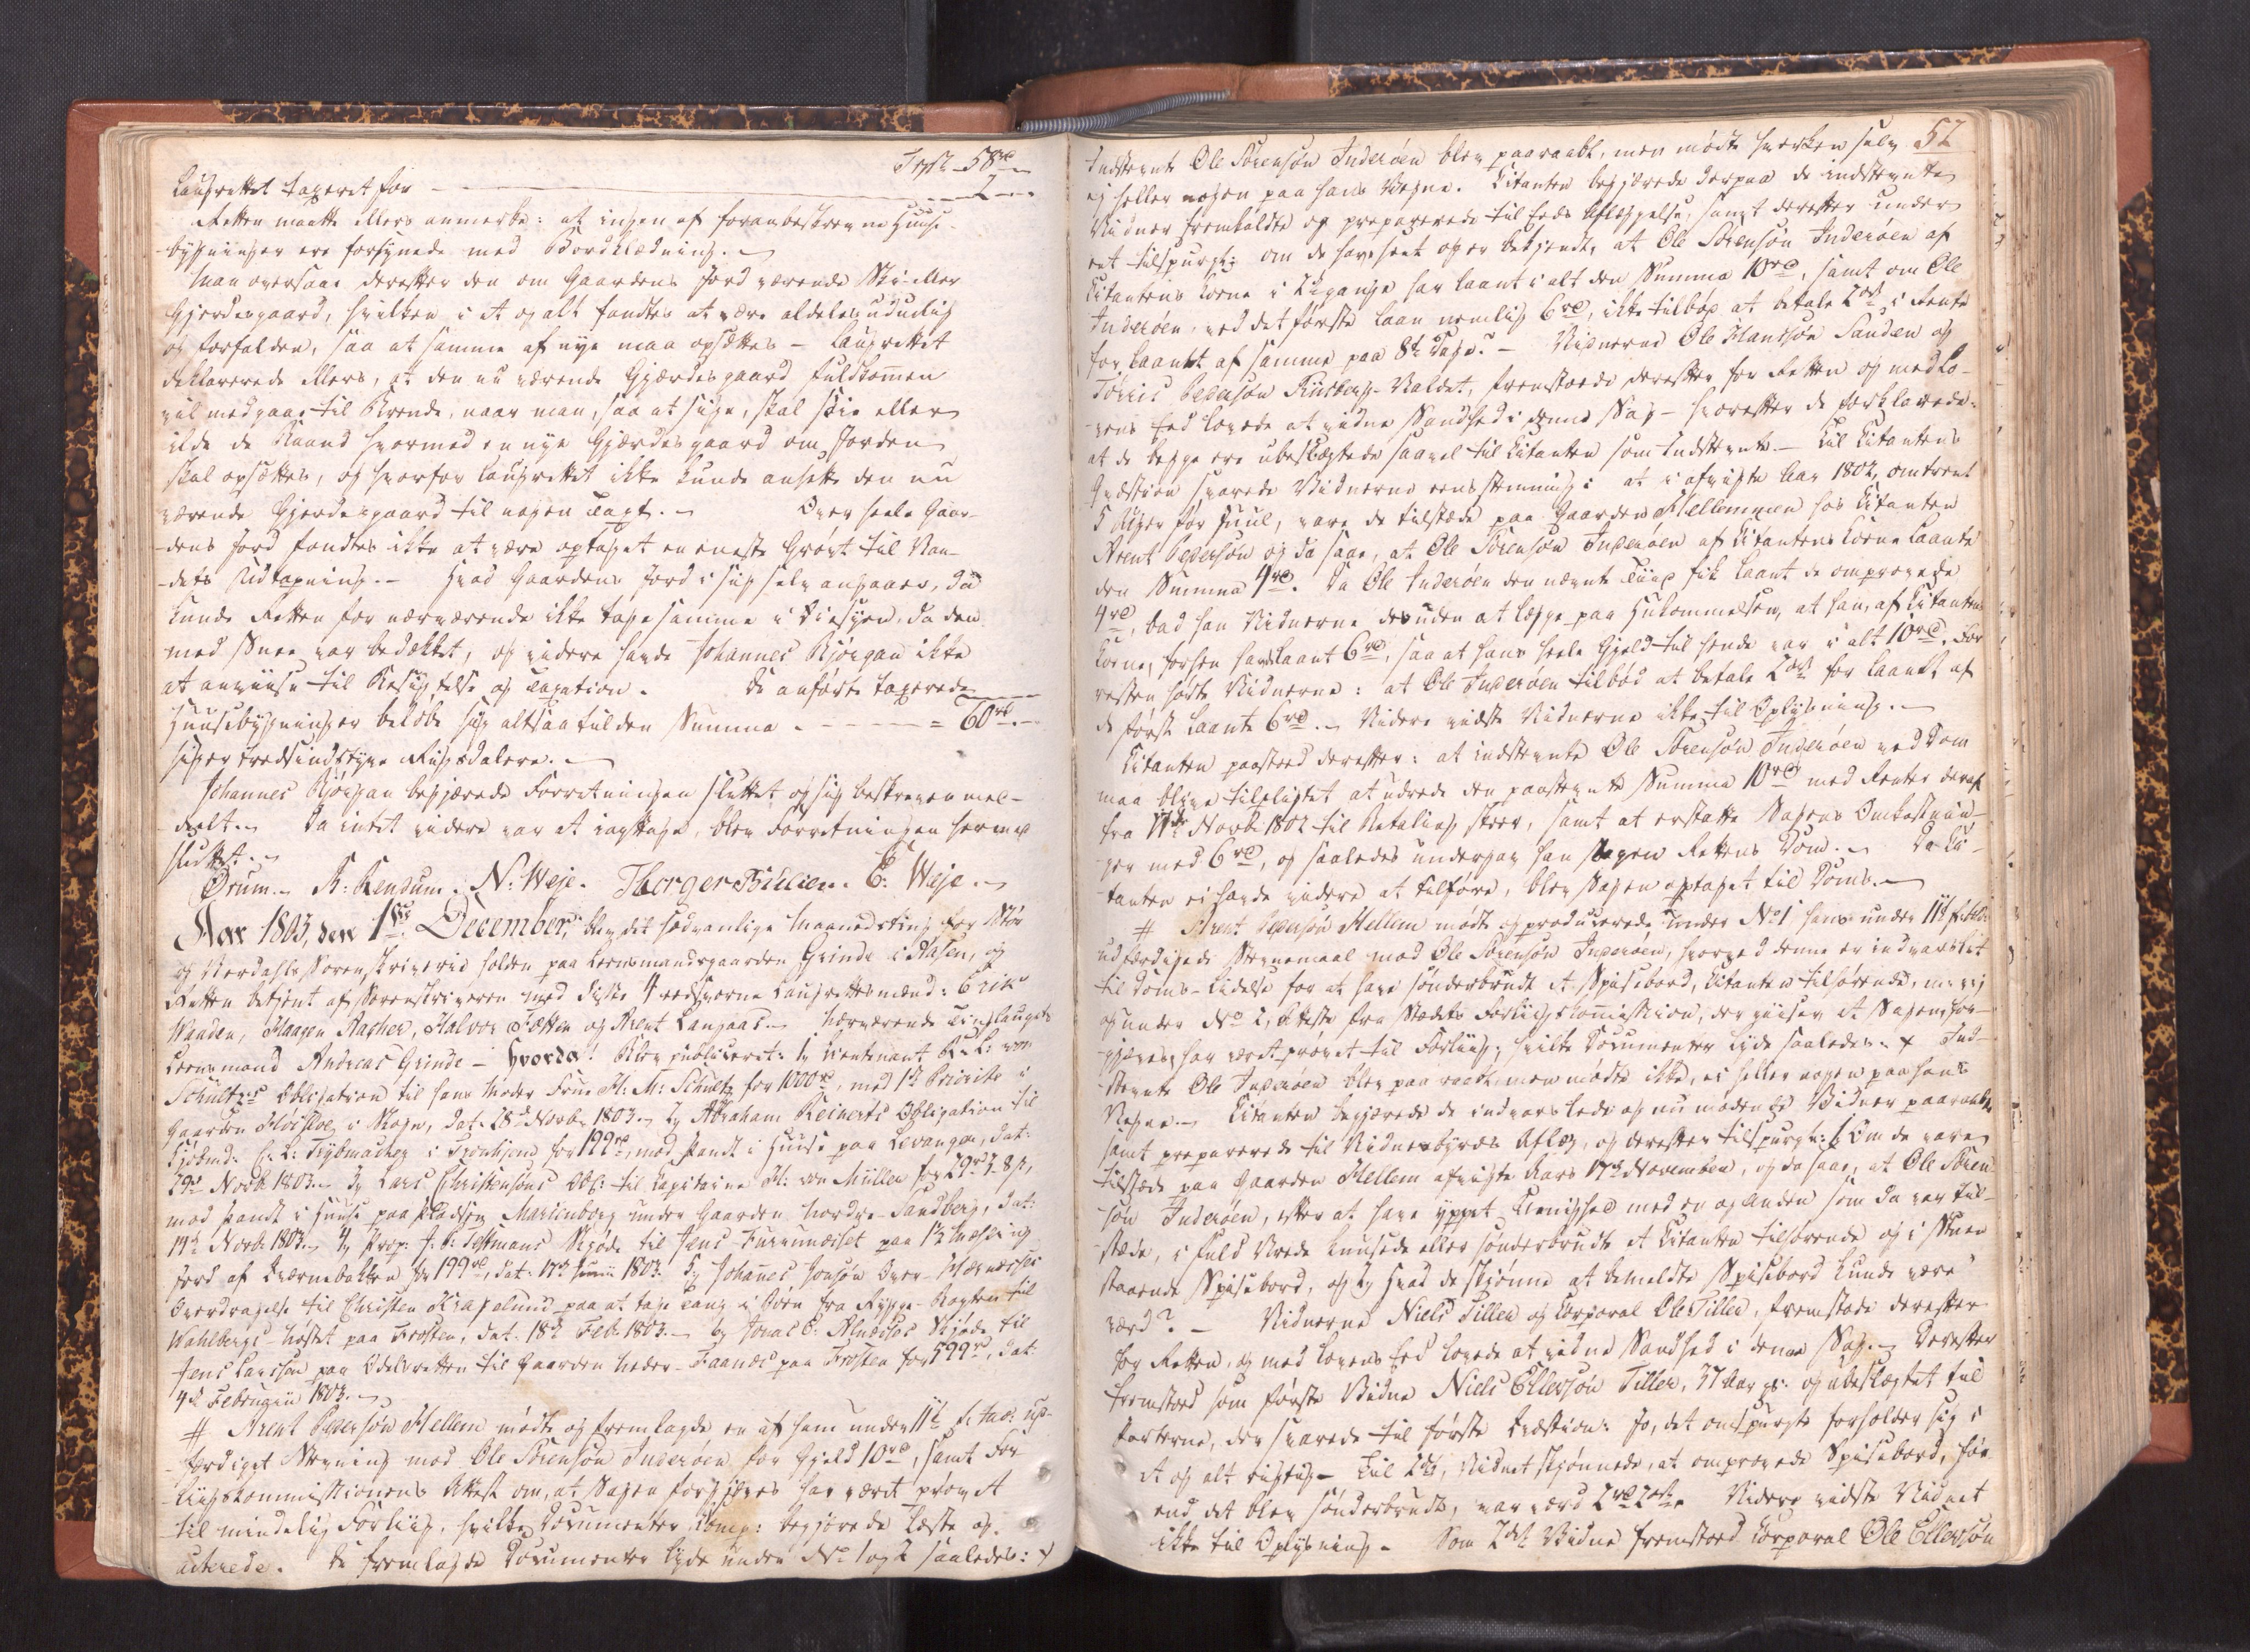 Trpst 58rd
Laugrettet taxeret for 2 - -
Retten maatte ellers anmerke: at ingen af foranbeskrevne Huuse-
bygninger ere forsynede med Bordklædning. -
Man oversaae derefter den om Gaardens Jord værende Ski- eller
Gjerdesgaard, hvilken i et og alt fandtes at være aldeles uduelig
og forfalden, saa at samme af nye maa opsættes - Laugrettet
deklarerede ellers, at den nu værende Gjærdesgaard fuldkommen
vil medgaae til Brænde, naar man, saa at sige, skal skie eller
ilde de Raand hvormed en nye Gjærdesgaard om Jorden
skal opsættes, og hvorfor Laugrettet ikke kunde ansætte den nu
værende Gjerdesgaard til nogen Taxt. - Over heele Gaar-
dens Jord fandtes ikke at være optaget en eneste Grøvt til Van-
dets Udtapning. - Hvad Gaardens Jord i sig selv angaaer, da
kunde Retten for nærværende ikke tage samme i Øiesyn, da den
med Snee var bedækket, og videre havde Johannes Bjørgan ikke
at anviise til Besigtelse og Taxation. De anførte taxerede
Huusebygninger beløbe sig altsaa til den Summa - - - = 60rd. -
siger tredsindstyve Rigsdalere. -
Johannes Bjørgan begjærede Forretningen sluttet og sig beskreven med-
deelt. - Da intet videre var at iagttage, blev Forretningen hermed
sluttet. -
Ørum. - R: Rendum. N: Weje. Thorger Bilien. E: Weje. -
Aar 1803, den 1ste December, blev det sædvanlige Maanedsting for Stør
og Værdahls Sorenskriverie holden paa Leensmandsgaarden Grinde i Skogn, og
Retten betjent af Sorenskriveren med disse 4 eedsvorne Laugrettesmænd: Erik
Wanden, Haagen Aasher, Halvor Fætten og Arent Langaas. - Nærværende Tinglaugets
Leensmand Andreas Grinde - Hvorda! Blev publiceret: 1, Lieutenant B: L: von
Schultzes Obligation til hans Moder Frue H: M: Schultz for 1000rd, med 1ste Prioritet i
Gaarden Holsloe i Skogn, dat. 28de Novbr. 1803. - 2, Abraham Reinerts Obligation til
Kjøbmd: C: L: Trybmacher i Tronhjem for 199rd, med Pandt i Huuse paa Levanger, dat:
29de Novb. 1803. - 3, Lars Christensens Obl: til Kapitaine H: von Müller for 29rd 3. 8 s,
med Pandt i Huuse paa Pladsen Marienborg under Gaarden Nordre-Sandberg, dat:
14de Novb. 1803. - 4, Prop: J: L: Feltmans Skjøde til Jens Furuunæiset paa 1½ Mæling
Jord af Qværnebakken for 199rd, dat. 17de Junii 1803. 5, Johannes Jonsøn Over-
Overdragelse til Christen Kragelund paa at tage Tang i Søen fra Rygge-Bogten til
Wahlbergs-Nøstet paa Frosten, dat. 18de Feb. 1803. - 6, Jonas E: Alnæsses Skjøde til
Jens Larssen paa Odelsretten til Gaarden Neder-Faanes paa Frosten for 599rd, dat.
4de Februarii 1803. -
# Arent Pedersøn Hellem mødte og fremlagde en af ham under 11te f. M. ud-
færdiget Stevning mod Ole Sørensøn Inderøen for Gjeld 10rd, samt For-
liigskommissionens Attest om, at Sagen forgjeves har været prøvet
til mindelig Forliig, hvilke Documenter Comp: begjærede læste og
acterede. De fremlagde Documenter lyde under No 1 og 2 saaledes: ×
52
Indstevnte Ole Sørensøn Inderøen blev paaraabt, men mødte hverken selv
ej heller nogen paa hans Vegne. Citanten begjærede derpaa de indstevnte
Vidner fremkaldte og præparerede til Eeds Aflæggelse, samt derefter under
eet tilspurgt: om de have seet og er bekjendt, at Ole Sørensøn Inderøen af
Citantens Kone i har laant i alt den Summa 10rd, samt om Ole
Inderøen, ved det første Laan nemlig 6rd, ikke tilbød at betale 2ort i Rente
for Laanet af samme paa 8te Dage. - Vidnerne Ole Hansøn Sanden og
Tørris Pedersøn Riisberg-Valdet, fremstoede derefter for Retten og med Lo-
vens Eed lovede at vidne Sandhed i denne Sag - hvorefter de forklarede:
at de begge ere ubeslægtede saavel til Citanten som Indstevnte. - Til Citantens
Qvæstion svarede Vidnerne eenstemmig: at i afvigte Aar 1802, omtrent
5 Uger før Juul, vare de tilstæde paa Gaarden Hellemmen hos Citanten
Arent Pedersøn og da saae, at Ole Sørensøn Inderøen af Citantens Kone laante
den Summa 4rd. Da Ole Inderøen den nævnte Tiid fik laant de omprovede
4rd, bad han Vidnerne desuden at lægge paa Hukommelsen, at han, af Citantens
Kone, forhen havde laant 6rd, saa at hans heele Gjeld til hende var i alt 10rd. For
resten hørte Vidnerne: at Ole Inderøen tilbød at betale 2ort for Laanet af
de først laante 6rd. - Videre vidste Vidnerne ikke til Oplysning. -
Citanten paastoed derefter: at indstevnte Ole Sørensøn Inderøen ved Dom
maa blive tilpligtet at udrede den paastevnte Summa 10rd med Renter deraf
fra 11te Novb. 1802 til Betaling skeer, samt at erstatte Sagens Omkostnin-
ger med 6rd, og saaledes undergav han Sagen Rettens Dom. - Da Ci-
tanten ei havde videre at tilføre, blev Sagen optaget til Doms. -
# Arent Pedersøn Hellem mødte og producerede under No 1 hans under 11te f. M.
udfærdigede Stevnemaal mod Ole Sørensøn Inderøen, hvorved denne er indvarslet
til Doms-Lidelse for at have sønderbrudt et Spiisebord, Citanten tilhørende,
og under No 2, Attest fra Stædets Forliigskommission, der viiser at Sagen for-
gjæves har været prøvet til Forliig, hvilke Documenter lyde saaledes: × Ind-
stevnte Ole Inderøen blev paaraabt, men mødte ikke, ei heller nogen paa hans
Vegne. - Citanten begjærede de indvarslede og nu mødende Vidner paaraabte
samt præparerede til Vidnesbyrds Aflæg, og derefter tilspurgt: 1, Om de vare
tilstæde paa Gaarden Hellem afvigte Aars 17de November, og da saae, at Ole Søren-
søn Inderøen, efter at have yppet Ueenighed med en og anden som da var til-
stæde, i fuld Vrede knusede eller sønderbrudt et Citanten tilhørende og i Stuen
staaende Spiisebord, og 2, Hvad de skjønne at bemeldte Spiisebord kunde være
værd? - Vidnerne Niels Tiller og Corporal Ole Tiller, fremstode derefter
for Retten, og med Lovens Eed lovede at vidne Sandhed i denne Sag. - Derefter
fremstoed som første Vidne Niels Ellevsøn Tiller, 37 Aar gl. og ubeslægtet til
Parterne, der svarede til første Qvæstion: Jo, det omspurgte forholder sig i
et og alt rigtig - Til 2det, Vidnet skjønnede, at omprovede Spiisebord, før
end det blev sønderbrudt, var værd 2rd 2ort. Videre vidste Vidnet
ikke til Oplysning. - Som 2det Vidne fremstoed Corporal Ole Ellevsøn